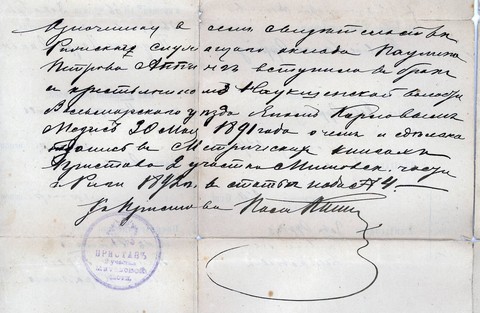 Означенная в семъ свидѣтельствѣ
Рижскаго служащаго оклада Паулина
Петрова вступила въ бракъ
съ крестьяниномъ Наукшенской волости
Вольмарскаго уѣзда Карловымъ
20 Мая 1891 года о чемъ и сдѣлана
запись въ Метрическихъ книгахъ
Пристава 2 участка Митавск. части
г. Риги 1891 г. въ статьѣ подъ № 4.
За Пристава
ПРИСТАВЪ
2 участка
Митавской
части